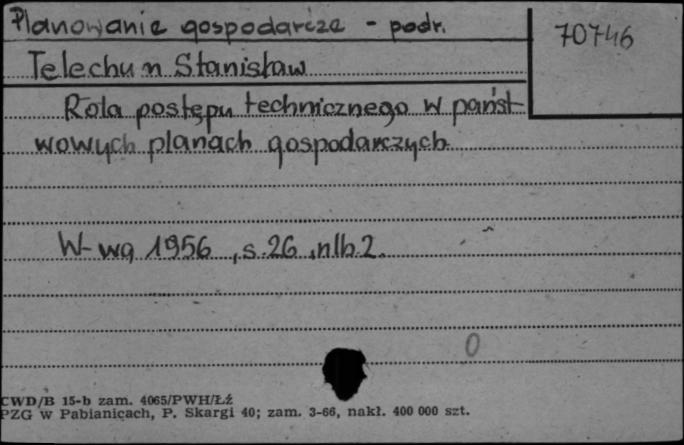 Planowanie gospodarcze - podr.
70746
Telechun Stanisław
Rola postępu technicznego w państ-
wowych planach gospodarczych
W-wa 1956, s. 26, nlb. 2.
0
CWD/B 15-b zam. 4065/PWH/Łź
PZG w Pabianicach, P. Skargi 40; zam. 3-66, nakł. 400 000 szt.